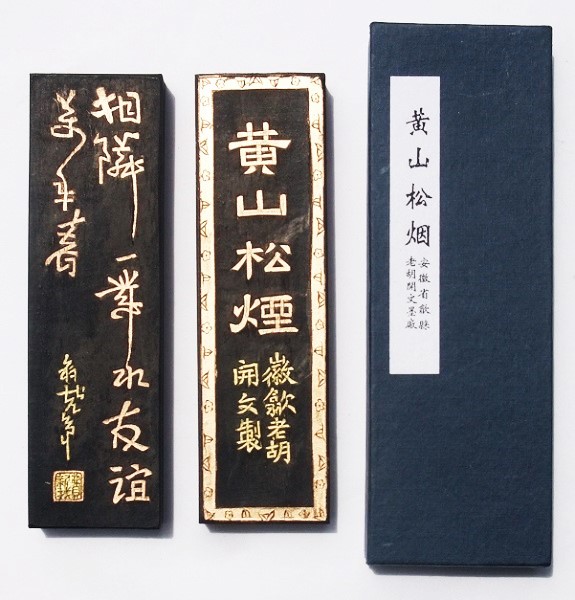 相隣一葦水友誼
萬年春
黄山松煙
徽歙老胡
開文製
黄山松烟
安徽省歙縣
老胡開文墨廠